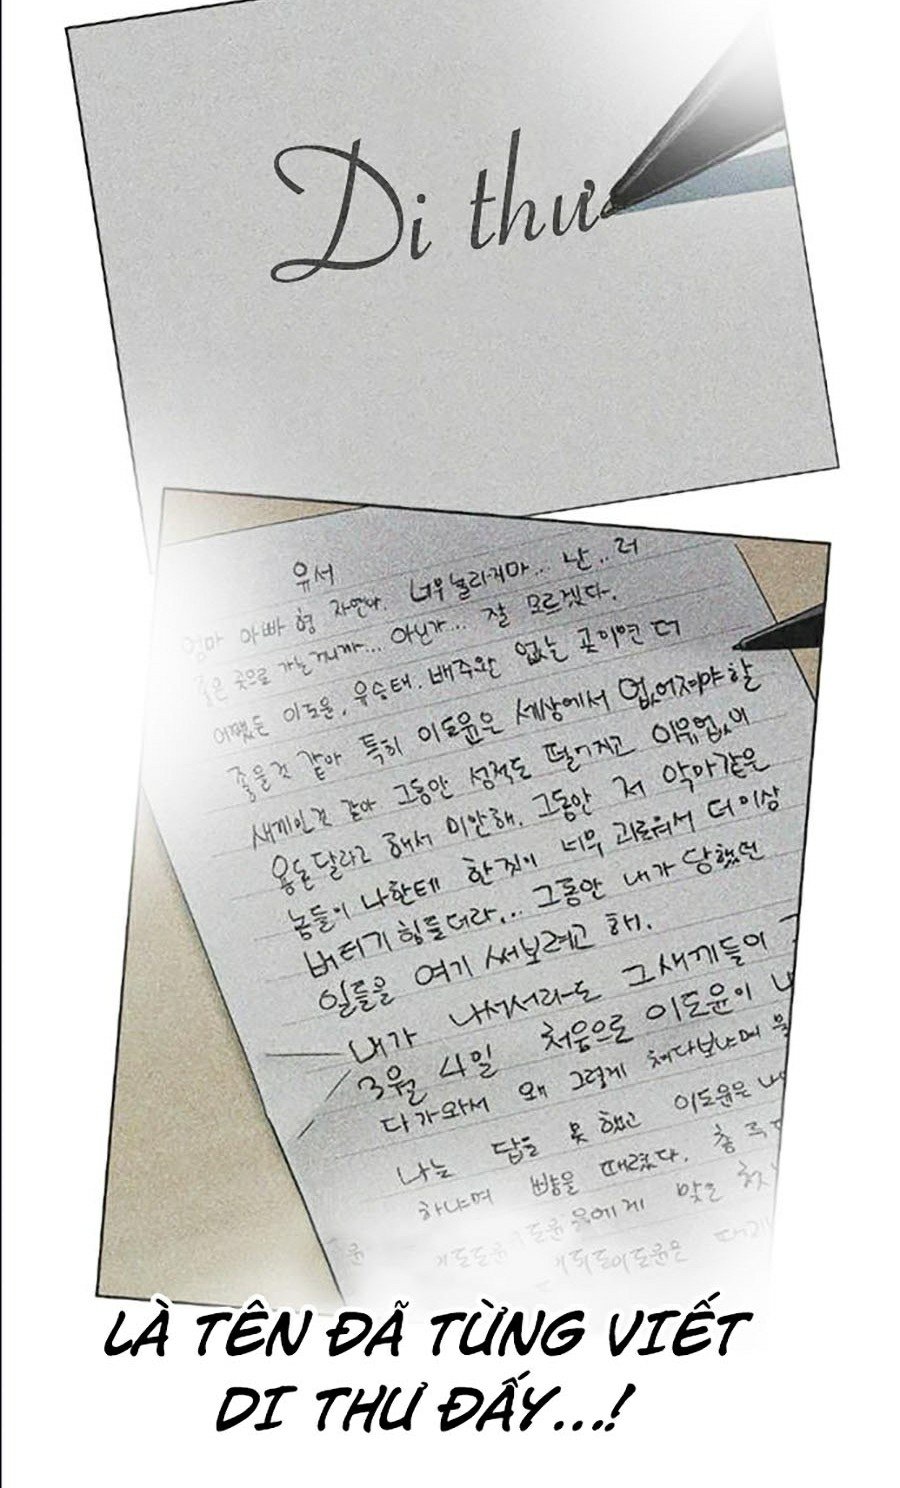 Di thư
유서
엄마 아빠 형 자연아. 너무 놀라지마... 난.. 더
좋은 곳으로 가는거니까... 아닌가... 잘 모르겠다.
어쨌든 이도윤, 유승태, 배주완 없는 곳이면 더
좋을것 같아 특히 이도윤은 세상에서 없어져야할
새끼인것 같아 그동안 성적도 떨어지고 이유없이
용돈달라고 해서 미안해. 그동안 저 악마같은
놈들이 나한테 한짓이 너무 괴로워서 더이상
버티기 힘들더라... 그동안 내가 당했던
일들을 여기 써보려고 해.
내가 나서서라도 그새끼들이
3월 4일 처음으로 이도윤이
다가와서 왜 그렇게 쳐다보냐며
나는 답을 못했고 이도윤은
하냐며 뺨을 때렸다.
에게 맞은
이도윤은
LÀ TÊN ĐÃ TỪNG VIẾT
DI THƯ ĐẤY...!